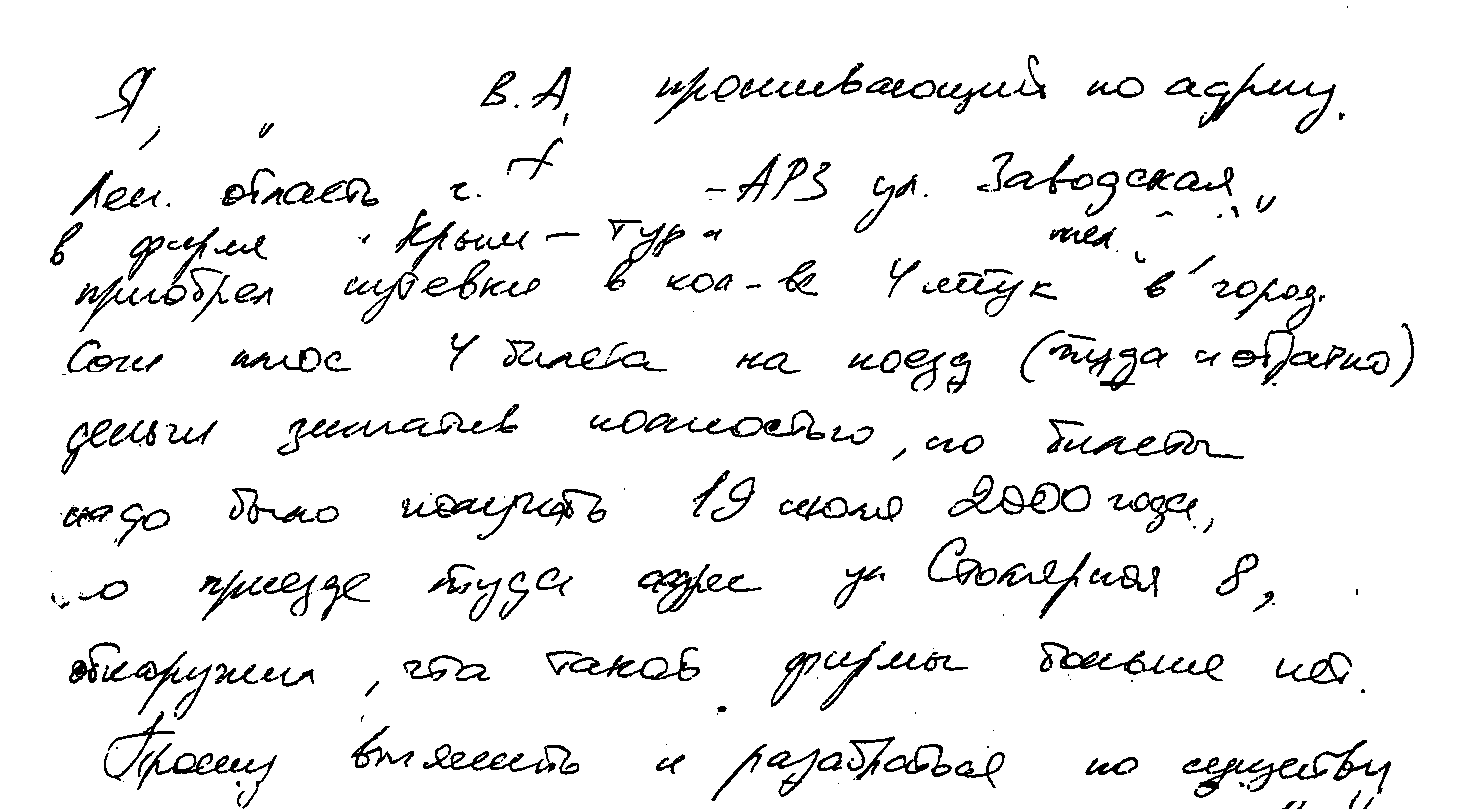 Я, В.А, проживающий по адресу.
Лен. область г. -АРЗ ул. Заводская
в фирме "Крым-Тур" тел.
приобрел путевки в кол-ве 4 штук в город
Сочи плюс 4 билета на поезд (туда и обратно)
деньги заплатив полностью, но билеты
надо было получить 19 июля 2000 года,
по приезде туда адрес ул Столярная 8,
обнаружил, что такой фирмы больше нет.
Прошу выяснить и разобраться по существу